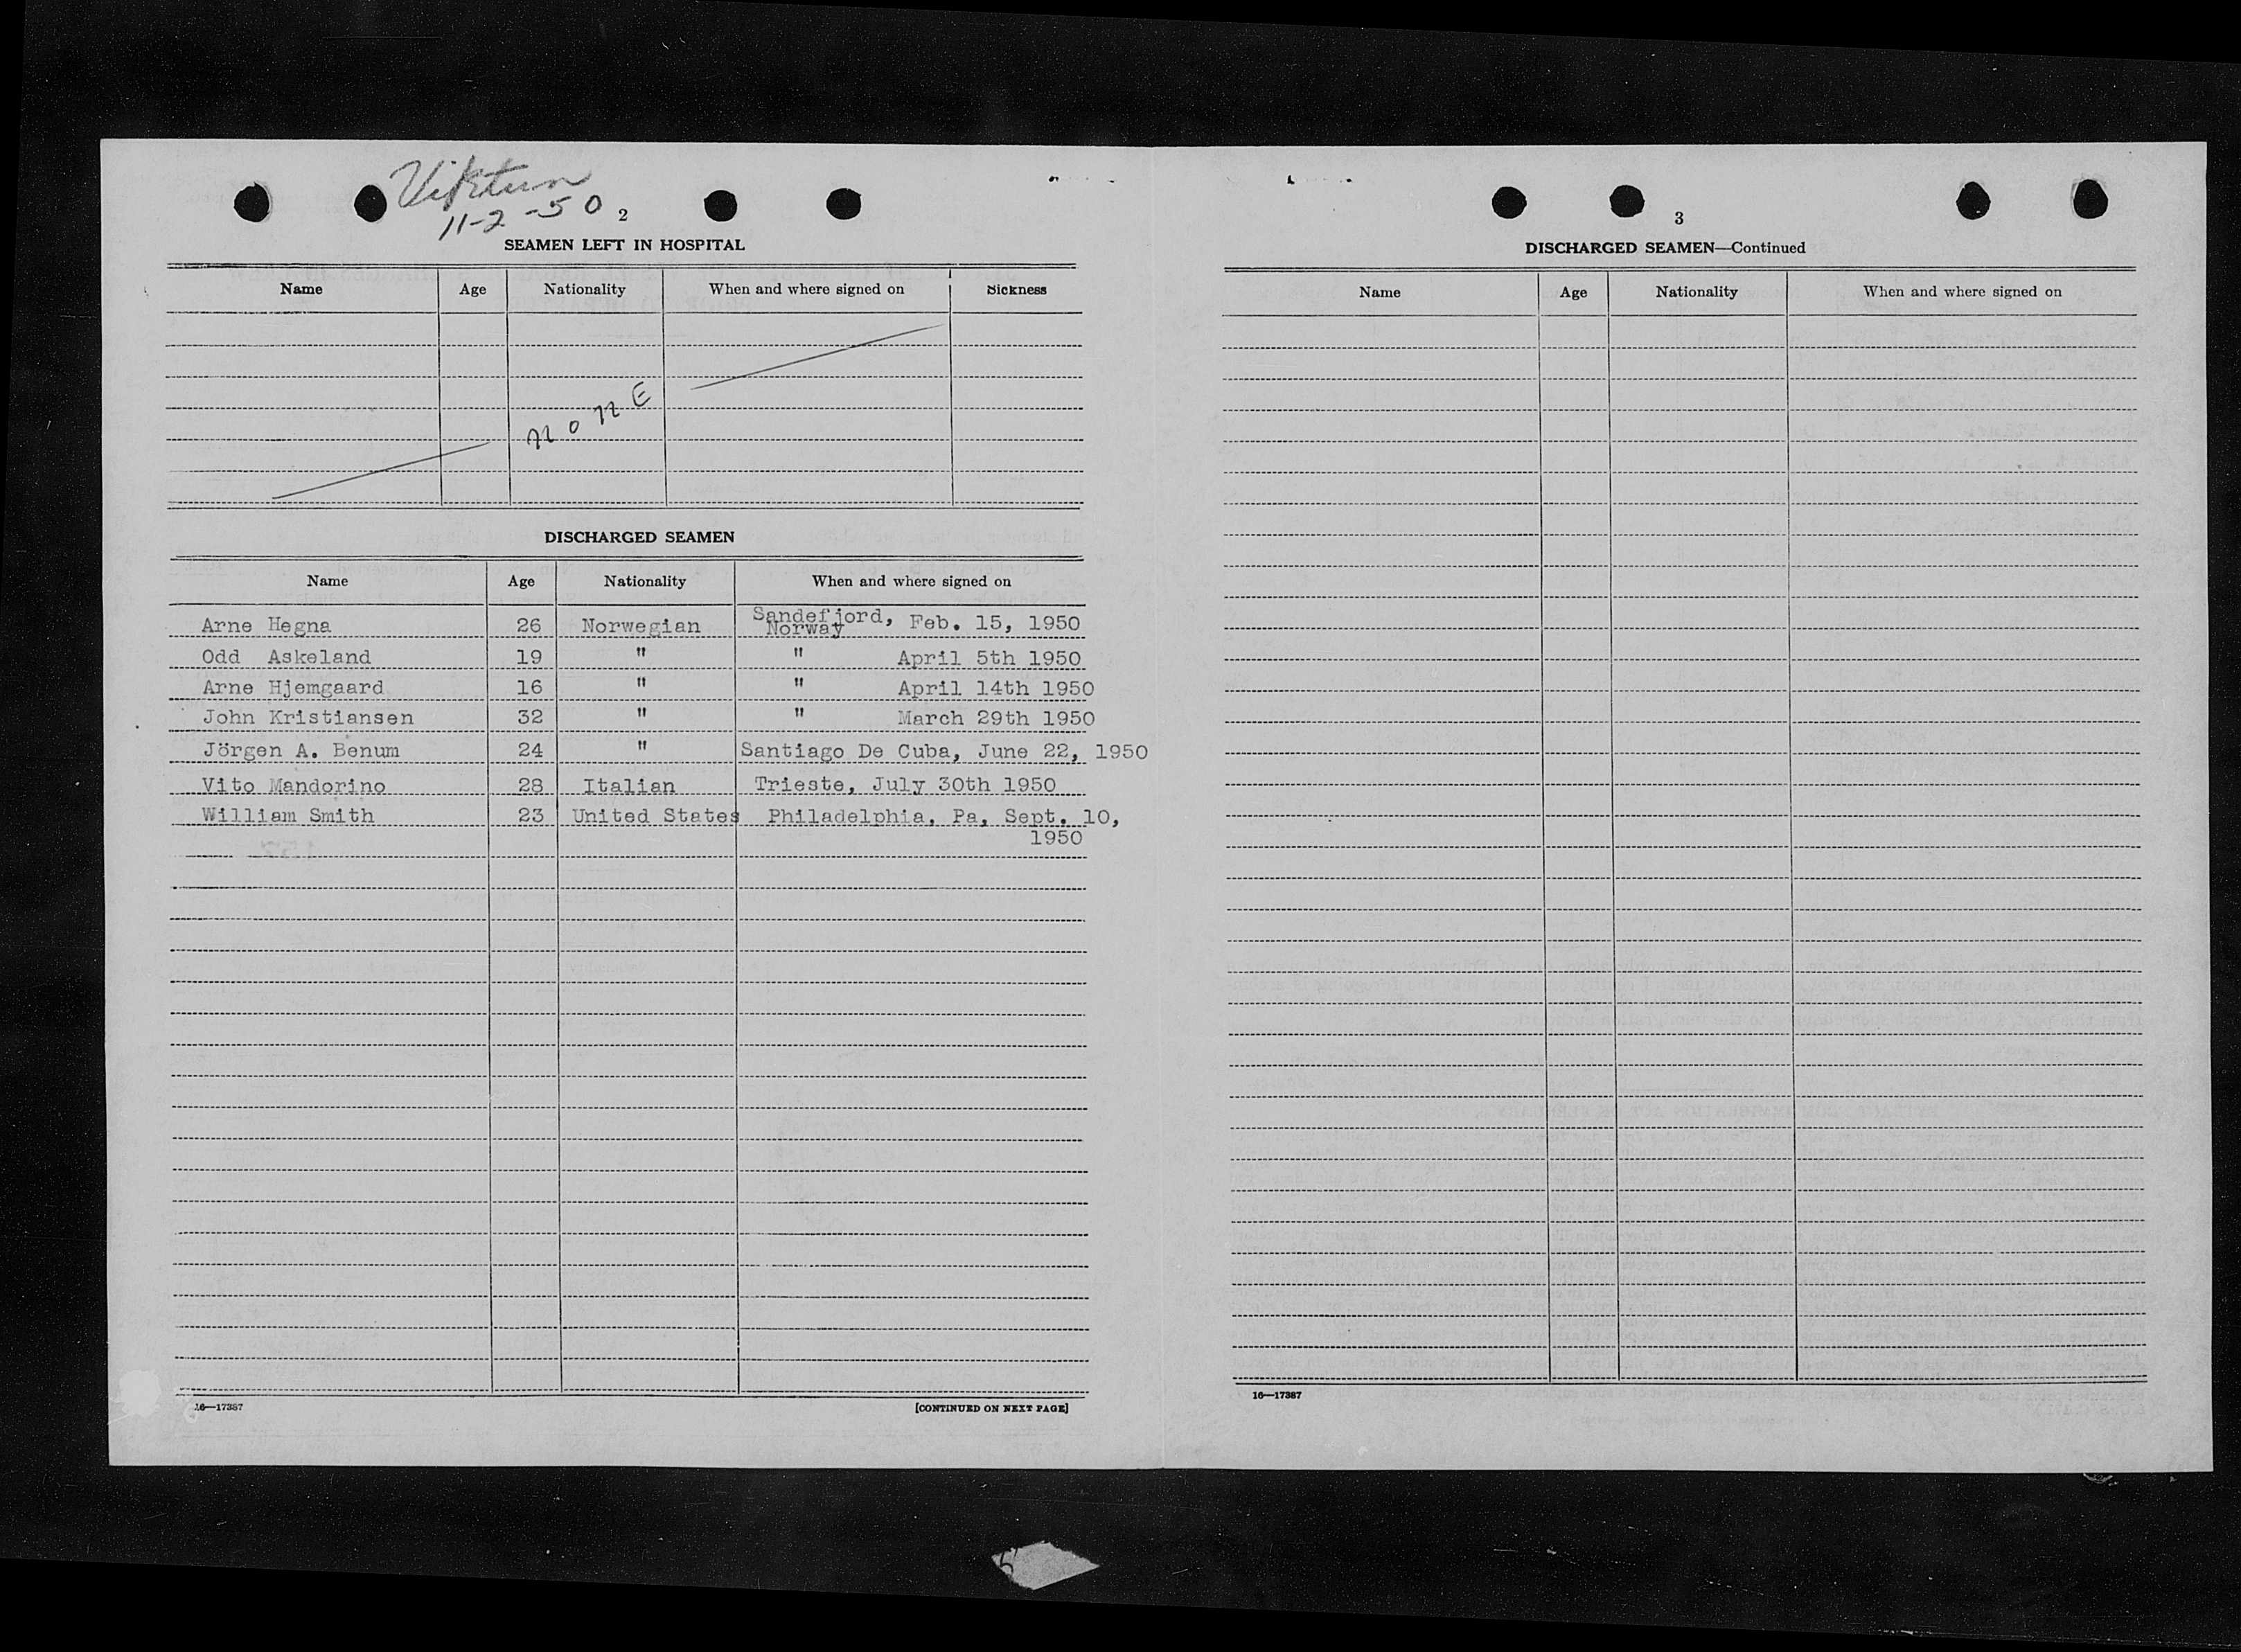 Viktun
11-2-50
2
SEAMEN LEFT IN HOSPITAL
Name Age Nationality When and where signed on Sickness
NONE
DISCHARGED SEAMEN
Name Age Nationality When and where signed on
Arne Hegna 26 Norwegian Sandefjord, Norway Feb. 15, 1950
Odd Askeland 19 " " April 5th 1950
Arne Hjemgaard 16 " " April 14th 1950
John Kristiansen 32 " " March 29th 1950
Jörgen A. Benum 24 " Santiago De Cuba, June 22, 1950
Vito Mandorino 28 Italian Trieste, July 30th 1950
William Smith 23 United States Philadelphia, Pa, Sept. 10,
1950
16—17387 [CONTINUED ON NEXT PAGE]
3
DISCHARGED SEAMEN—Continued
Name Age Nationality When and where signed on
16—17387